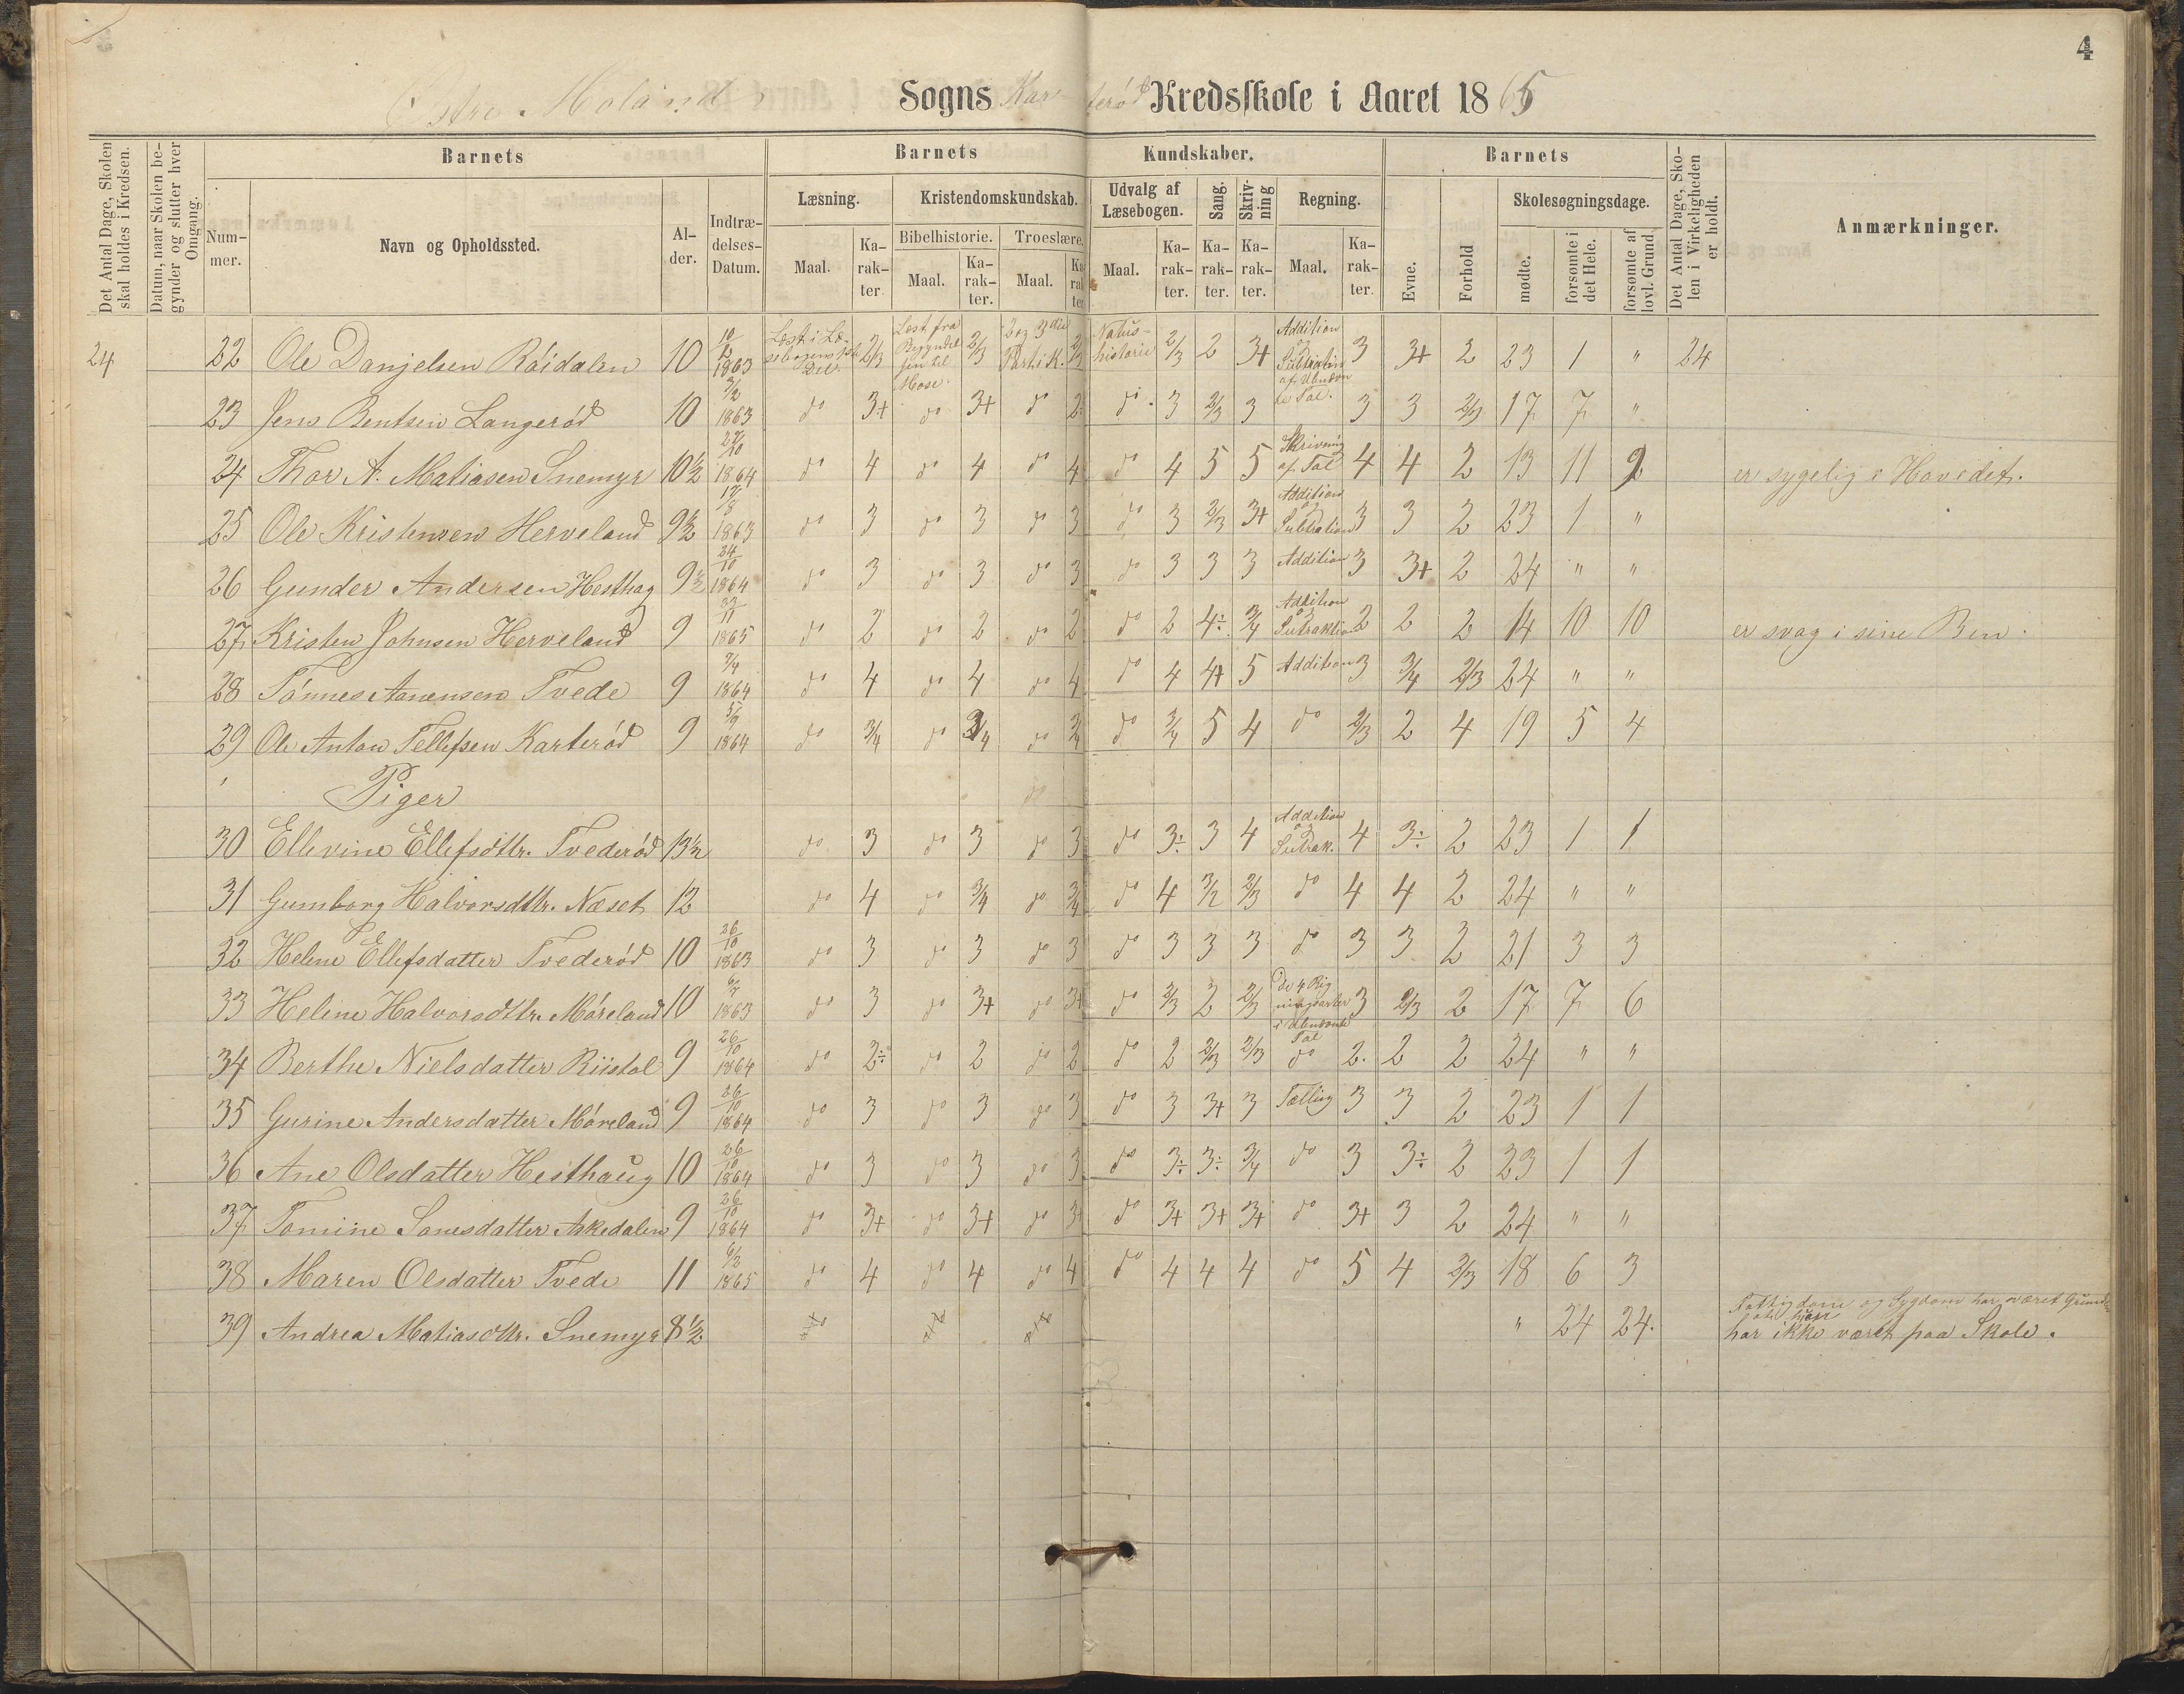 4
Østre Moland Sogns Karterød Kredsskole i Aaret 1865
Det Antal Dage, Skolen skal holdes i Kredsen.
Datum, naar Skolen begynder og slutter hver Omgang.
Barnets
Nummer.
Navn og Opholdssted.
Alder.
Indtrædelses-Datum.
Barnets Kundskaber.
Læsning.
Maal.
Karakter
Kristendomskundskab.
Bibelhistorie.
Maal.
Karakter.
Troeslære.
Maal.
Karakter
Udvalg af Læsebogen.
Maal.
Karakter.
Sang.
Karakter.
Skrivning
Karakter.
Regning.
Maal.
Karakter
Barnets
Evne.
Forhold
Skolesøgningsdage.
mødte.
forsømte i det Hele.
forsømte af lovl. Grund.
Det Antal Dage, Skolen i Virkeligheden er holdt.
Anmærkninger.
24 22 Ole Danjelsen Röidalen 10 10/12 1863 Læst i Læsebogens 1ste Del. 2/3 Læst fra Begyndelsen til Mose. 2/3 2 og 3die Part i K. 2/3 Naturhistorie 2/3 2 3+ Addition og Subtraktion af Ubnævnte Tal. 3 3+ 2 23 1 " 24
23 Jens Bentsen Langerød 10 3/2 1863 do 3+ do 3+ do 2 do 3 2/3 3 3 3 2/3 17 7 "
24 Thor A. Matiasen Snemyr 10½ 27/10 1864 do 4 do 4 do 4 do 4 5 5 Skrivning af Tal 4 4 2 13 11 9 er sygelig i Hovedet.
25 Ole Kristensen Herveland 9½ 17/8 1863 do 3 do 3 do 3 do 3 2/3 3+ Addition og Subtration 3 3 2 23 1 "
26 Gunder Andersen Hesthag 9½ 24/10 1864 do 3 do 3 do 3 do 3 3 3 Addition 3 3+ 2 24 " "
27 Kristen Johnsen Herveland 9 22/11 1865 do 2 do 2 do 2 do 2 4÷ 3/4 Addition og Sutraktion 2 2 2 14 10 10 er svag i sine Ben.
28 Tønnes Aanensen Tvede 9 7/4 1864 do 4 do 4 do 4 do 4 4+ 5 Addition 3 3/4 2/3 24 " "
29 Ole Anton Tellefsen Karterød 9 5/9 1864 do 3/4 do 3/4 do 3/4 do 3/4 5 4 do 2/3 2 4 19 5 4
Piger do
30 Ellevine Ellefsdttr. Tvederød 13½ do 3 do 3 do 3 do 3÷ 3 4 Addition og Sutrak. 4 3÷ 2 23 1 1
31 Gumborg Halvorsdttr. Næset 12 do 4 do 3/4 do 3/4 do 4 3/2 2/3 do 4 4 2 24 " "
32 Helene Ellefsdatter Tvederød 10 26/10 1863 do 3 do 3 do 3 do 3 3 3 do 3 3 2 21 3 3
33 Heline Halvorsdttr. Møreland 10 6/7 1863 do 3 do 3+ do 3+ do 2/3 2 2/3 de 4 Regningsarter i Ubenævnte Tal 3 2/3 2 17 7 6
34 Berthe Nielsdatter Riistol 9 26/10 1864 do 2÷ do 2 do 2 do 2 2/3 2/3 do 2. 2 2 24 " "
35 Gurine Andersdatter Møreland 9 26/10 1864 do 3 do 3 do 3 do 3 3+ 3 Tælling 3 3 2 23 1 1
36 Ane Olsdatter Hesthaug 10 26/10 1864 do 3 do 3 do 3 do 3÷ 3÷ 3/4 do 3 3÷ 2 23 1 1
37 Tomine Sørnsdatter Askedalen 9 26/10 1864 do 3+ do 3+ do 3+ do 3+ 3+ 3+ do 3+ 3 2 24 " "
38 Maren Olsdatter Tvede 11 6/2 1865 do 4 do 4 do 4 do 4 4 4 do 5 4 2/3 18 6 3
39 Andrea Matiasdttr. Snemyr 8½ do do do " 24 24. Fattigdom og Sygdom har været Grunden at hun har ikke været paa Skole.